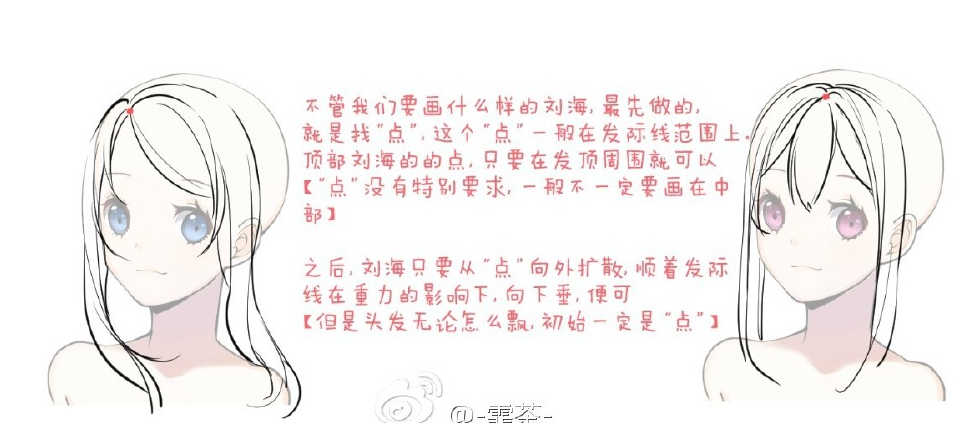 不管我们要画什么样的刘海,最先做的,
就是找“点”,这个“点”一般在发际线范围上.
顶部刘海的的点,只要在发顶周围就可以
【“点”没有特别要求,一般不一定要画在中
部】
之后,刘海只要从“点”向外扩散,顺着发际
线在重力的影响下,向下垂,便可
【但是头发无论怎么飘,初始一定是“点”】